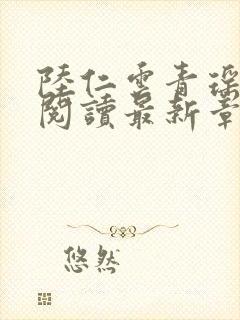 陸仁雲青瑤
閱讀最新章
悠然